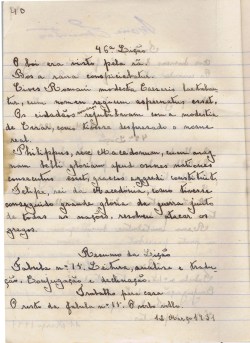 40
46ª Lição
O boi era visto pela rã.
Bos a rana conspiciebatur.
Cives Romani modestia Caesaris laetaban-
tur, cum nomen regium aspernatus esset.
Os cidadãos rejubilavam com a modestia
de Cesar, com tivesse desprezado o nome
real.
Philippus, rex Macedonum, cum mag-
nam belli gloriam apud omnes nationes
consecutus esset, graecos aggredi constituit.
Felipe, rei da Macedonia, como tivesse
conseguido grande gloria de guerra junto
de todas as nações, resolveu atacar os
gregos.
Resumo da Lição
Fabula nº 11. Leitura, analise e tradu-
ção. Conjugação e declinação.
Trabalho para casa
O resto da fabula nº 11.